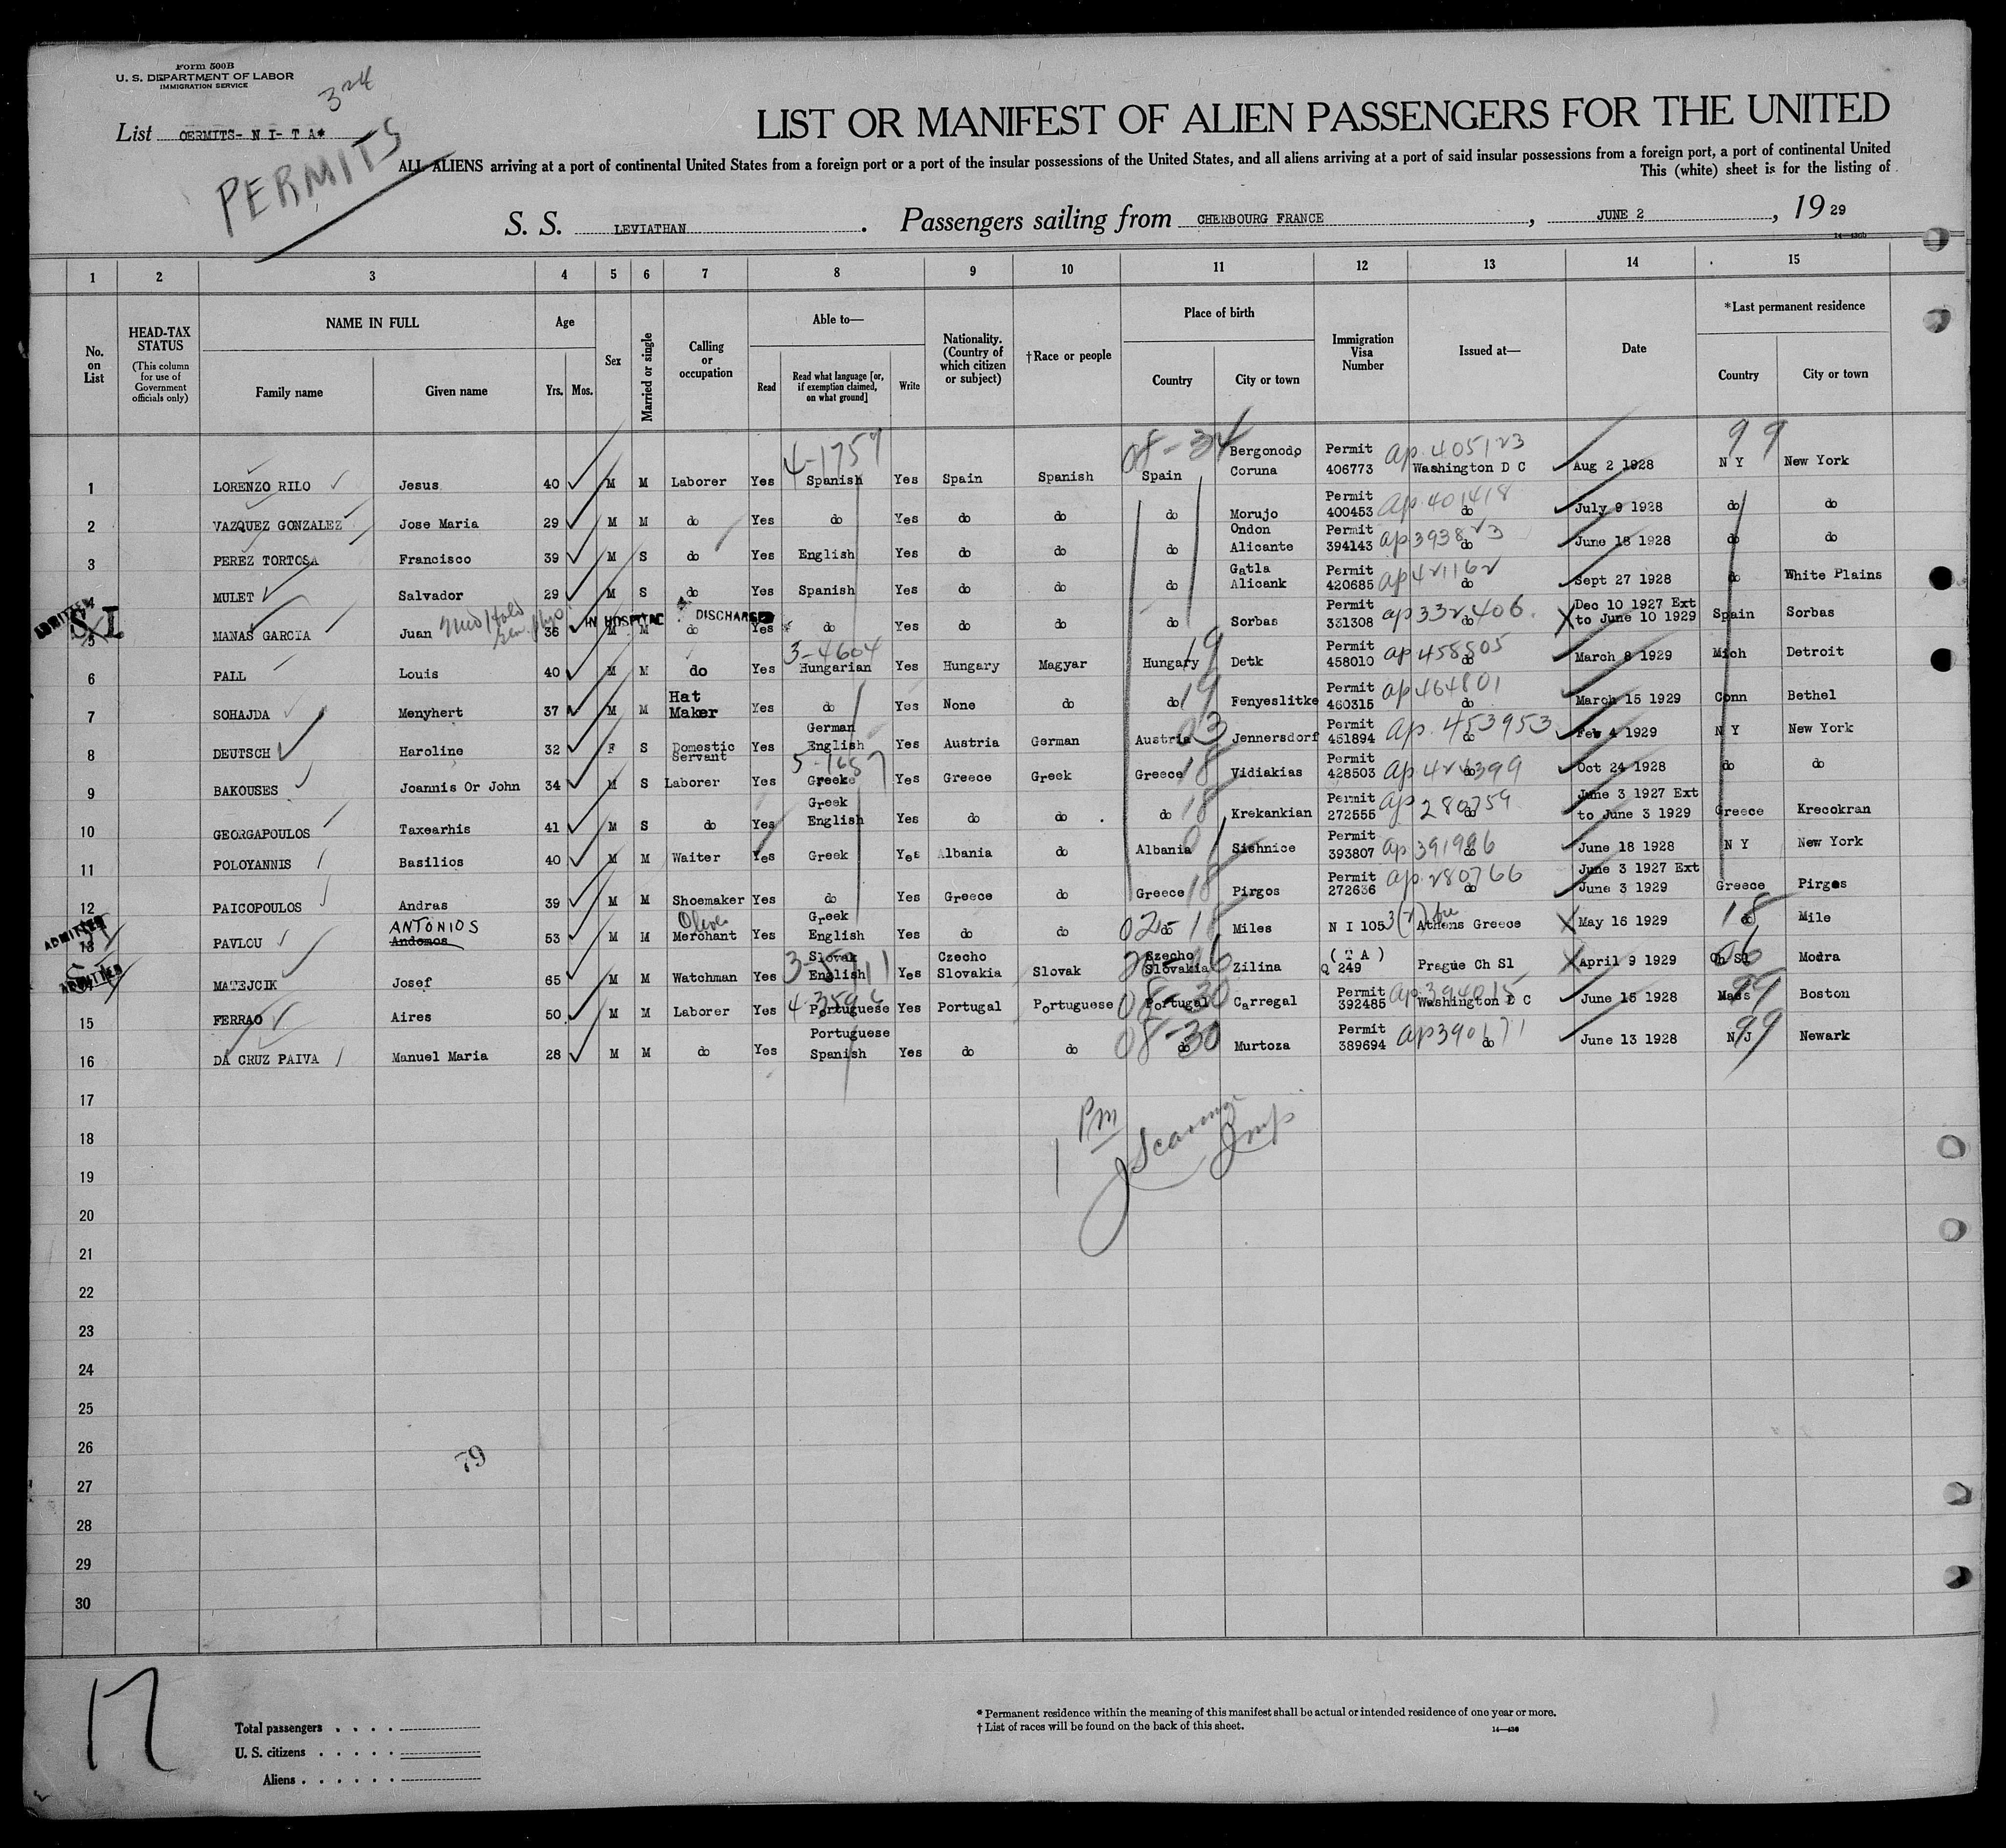 Form 500B
U. S. DEPARTMENT OF LABOR
IMMIGRATION SERVICE
324
List OERMITS- N I- T A*
PERMITS
LIST OR MANIFEST OF ALIEN PASSENGERS FOR THE UNITED
ALL ALIENS arriving at a port of continental United States from a foreign port or a port of the insular possessions of the United States, and all aliens arriving at a port of said insular possessions from a foreign port, a port of continental United
This (white) sheet is for the listing of
S. S. LEVIATHAN. Passengers sailing from CHERBOURG FRANCE, JUNE 2, 19 29
14—430b
1 2 3 4 5 6 7 8 9 10 11 12 13 14 15
No. on List
HEAD-TAX STATUS (This column for use of Government officials only)
NAME IN FULL Family name Given name
Age Yrs. Mos.
Sex
Married or single
Calling or occupation
Able to— Read Read what language [or, if exemption claimed, on what ground] Write
Nationality. (Country of which citizen or subject)
†Race or people
Place of birth Country City or town
Immigration Visa Number
Issued at—
Date
*Last permanent residence Country City or town
4-1757 08-34 99
1 LORENZO RILO Jesus 40 M M Laborer Yes Spanish Yes Spain Spanish Spain Bergonodo Coruna Permit 406773 ap. 405123 Washington D C Aug 2 1928 N Y New York
2 VAZQUEZ GONZALEZ Jose Maria 29 M M do Yes do Yes do do do Morujo Permit 400453 ap. 401418 do July 9 1928 do do
3 PEREZ TORTOSA Francisco 39 M S do Yes English Yes do do do Ondon Alicante Permit 394143 ap 393823 do June 18 1928 do do
4 MULET Salvador 29 M S do Yes Spanish Yes do do do Gatla Alicank Permit 420685 ap 421162 do Sept 27 1928 do White Plains
ADMITTED S I IN HOSPITAL DISCHARGED
5 MANAS GARCIA Juan 36 M M do Yes do Yes do do do Sorbas Permit 331308 ap 332406. do Dec 10 1927 Ext to June 10 1929 Spain Sorbas
3-4604 19
6 PALL Louis 40 M M do Yes Hungarian Yes Hungary Magyar Hungary Detk Permit 458010 ap 458505 do March 8 1929 Mich Detroit
7 SOHAJDA Menyhert 37 M M Hat Maker Yes do Yes None do do 19 Fenyeslitke Permit 460315 ap 464801 do March 15 1929 Conn Bethel
8 DEUTSCH Haroline 32 F S Domestic Servant Yes German English Yes Austria German Austria 03 Jennersdorf Permit 451894 ap. 453953 do Feb 4 1929 N Y New York
5-1657
9 BAKOUSES Joannis Or John 34 M S Laborer Yes Greeke Yes Greece Greek Greece 18 Vidiakias Permit 428503 ap 424399 do Oct 24 1928 do do
10 GEORGAPOULOS Taxearhis 41 M S do Yes Greek English Yes do do do 18 Krekankian Permit 272555 ap 280759 do June 3 1927 Ext to June 3 1929 Greece Krecokran
11 POLOYANNIS Basilios 40 M M Waiter Yes Greek Yes Albania do Albania 01 Sishnice Permit 393807 ap 391996 do June 18 1928 N Y New York
12 PAICOPOULOS Andras 39 M M Shoemaker Yes do Yes Greece do Greece 18 Pirgos Permit 272636 ap. 280766 do June 3 1927 Ext June 3 1929 Greece Pirgos
ADMITTED
13 PAVLOU ANTONIOS Andomos 53 M M Olive Merchant Yes Greek English Yes do do 02-18 do Miles N I 1053 Athens Greece May 16 1929 18 do Mile
ADMITTED
MATEJCIK Josef 65 M M Watchman Yes Slovak English Yes Czecho Slovakia Slovak Szecho Slovakia Zilina ( T A ) Q 249 Prague Ch Sl April 9 1929 Ch Sl 06 Modra
15 FERRAO Aires 50 M M Laborer Yes 4-3596 Portuguese Yes Portugal Portuguese 08-30 Portugal Carregal Permit 392485 ap. 394015 Washington D C June 15 1928 Mass 99 Boston
16 DA CRUZ PAIVA Manuel Maria 28 M M do Yes Portuguese Spanish Yes do do 08-30 do Murtoza Permit 389694 ap 390671 do June 13 1928 N J 99 Newark
17
1 Pm
18
19
20
21
22
23
24
25
26
79
27
28
29
30
17
Total passengers
U. S. citizens
Aliens
* Permanent residence within the meaning of this manifest shall be actual or intended residence of one year or more.
† List of races will be found on the back of this sheet.
14—430